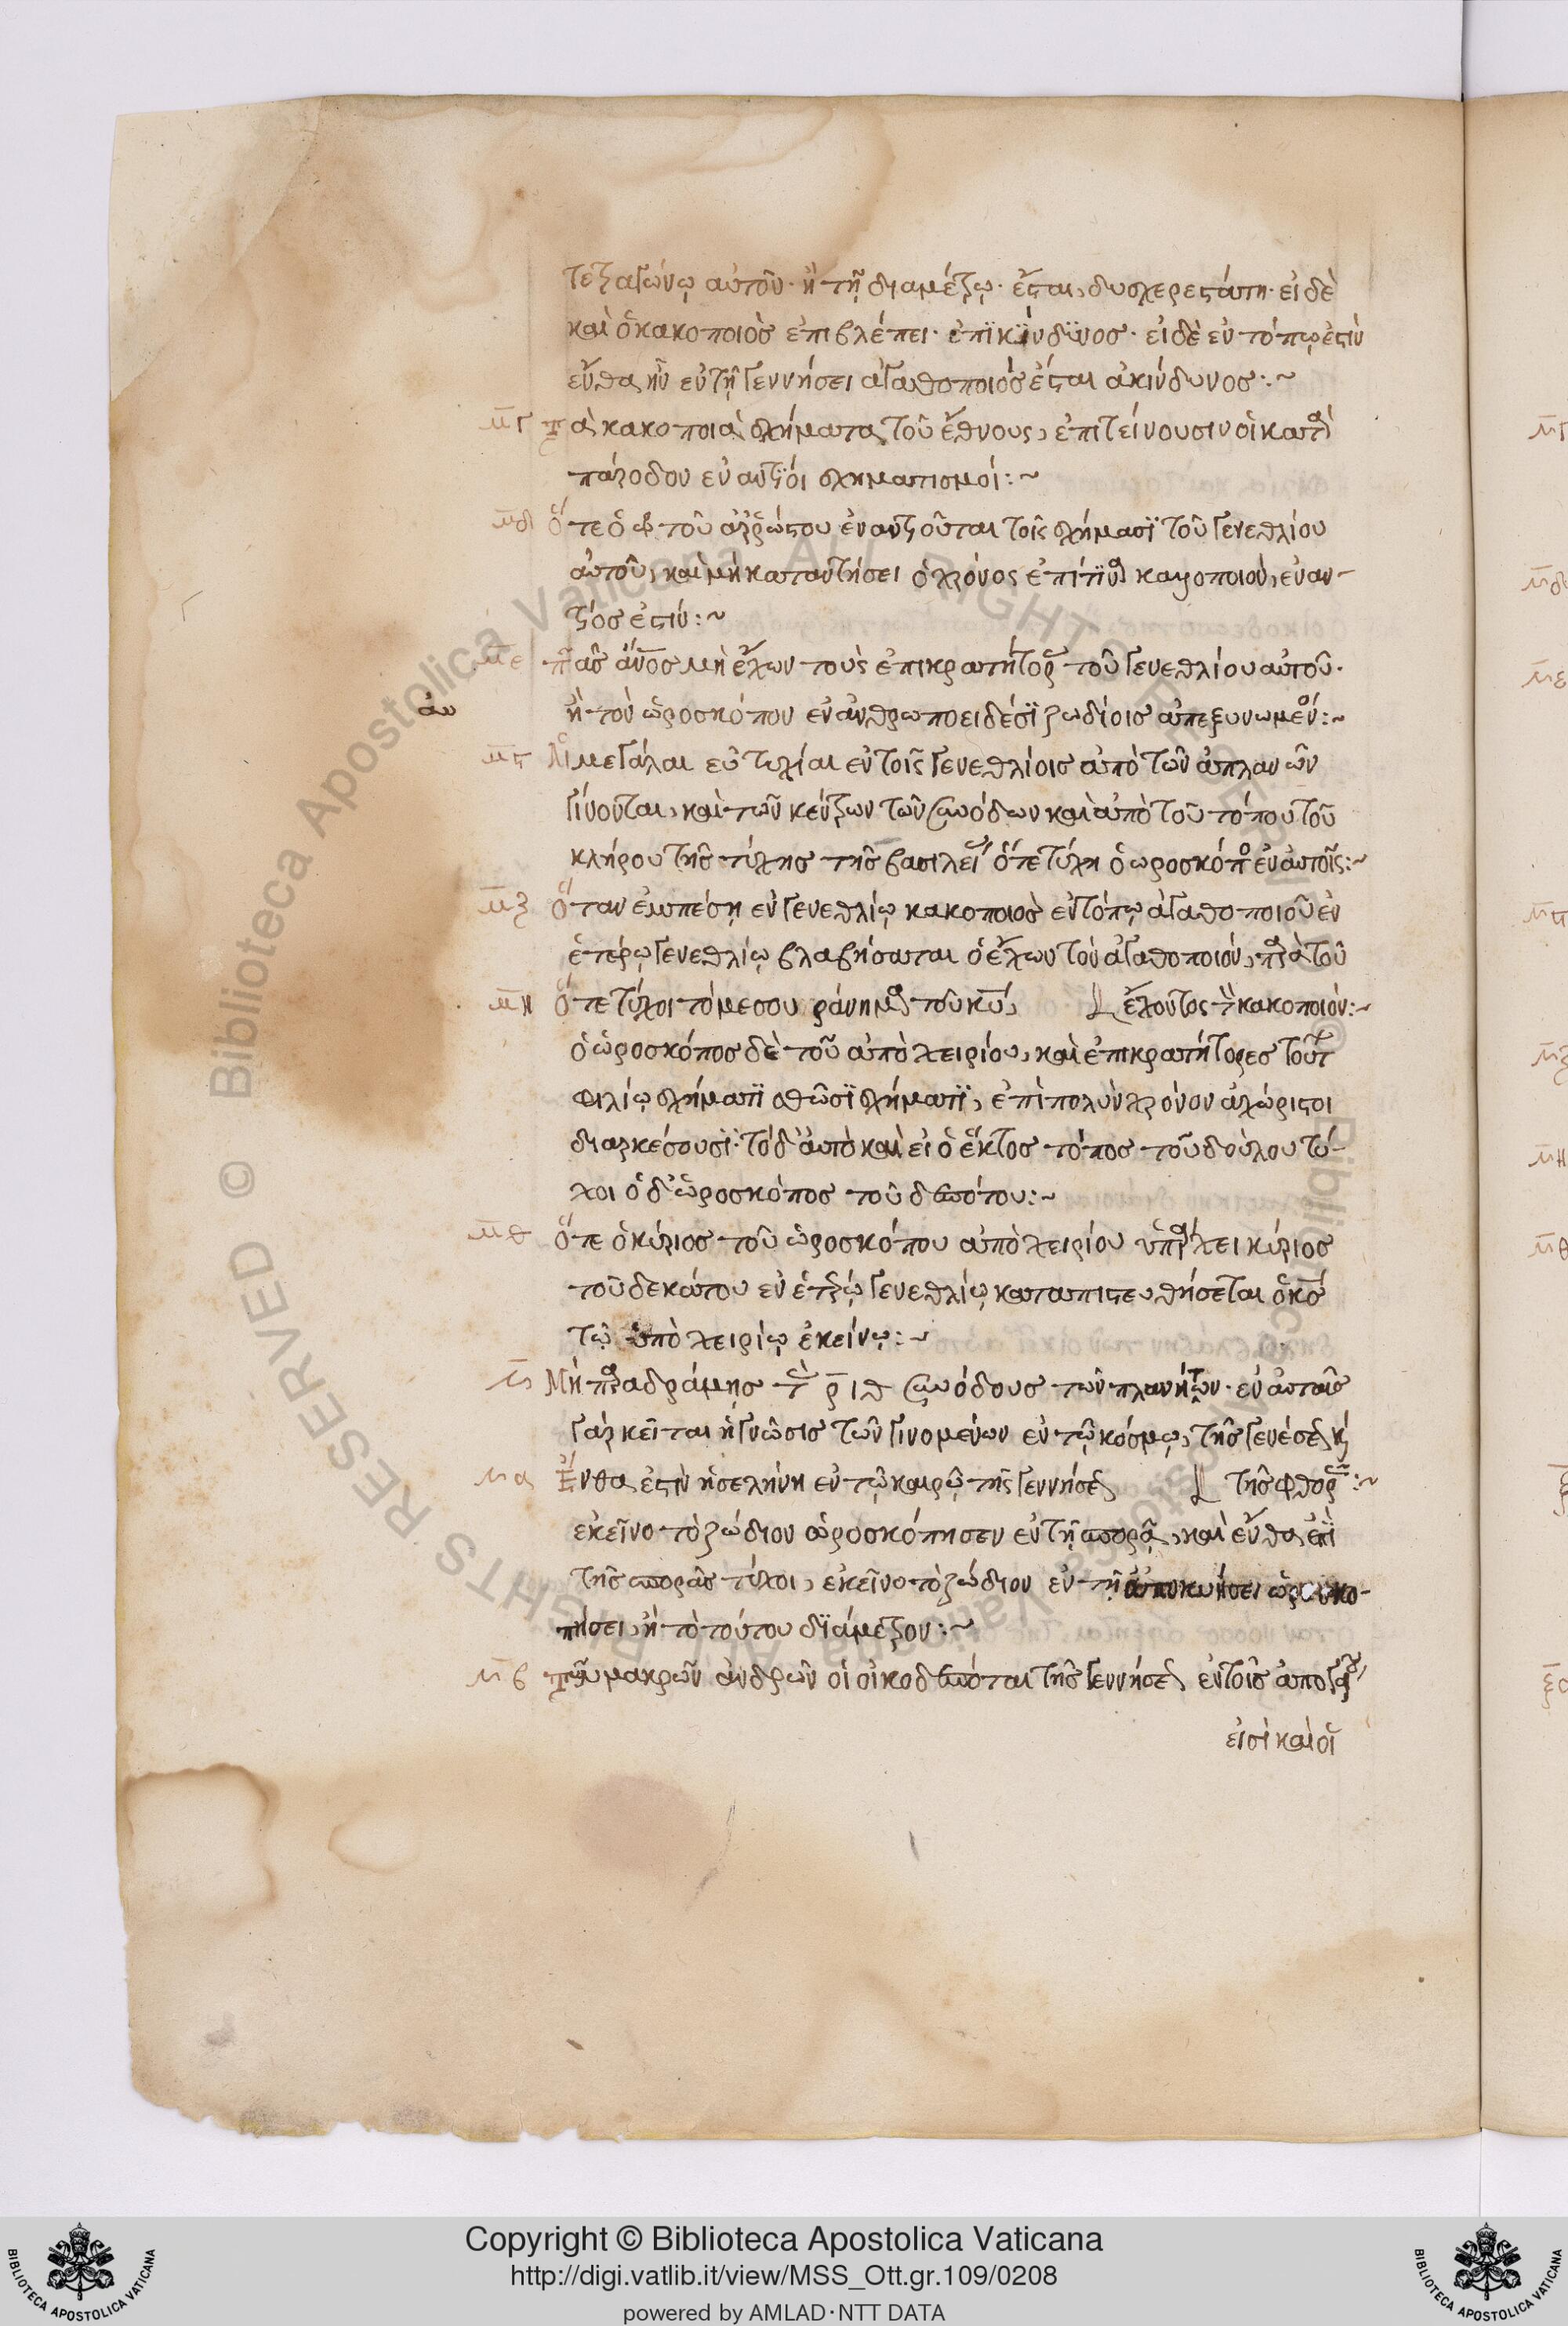 τεξαγώνῳ αὐτοῦ· ἢ τῇ διαμέτρῳ· ἔσται, δυσχερεστάτη· εἰ δὲ
καὶ ὁ κακοποιὸς ἐπιβλέπει· ἐπϊκϊνδϋνος· εἰ δὲ ἐν τόπῳ ἐστὶν
ἔνθα ἦν ἐν τῇ γεννήσει ἀγαθοποιός ἔσται ἀκίνδυνος:~
μγ Τὰ κακοποιὰ σχήματα τοῦ ἔθνους, ἐπιτείνουσιν οἱ κατὰ
πάροδον ἐναντίοι σχηματισμοί:~
μδ ὅτε ὁ τοῦ ἀρρώστου ἐναντιοῦται τοῖς σχήμασϊ τοῦ γενεθλίου
αὐτοῦ, καὶ μὴ καταντήσει ὁ χρόνος ἐπί τϊνα καγοποιοὺ, ἐναν-
τίος ἐστίν:~
με πᾶς ἄνος μὴ ἔχων τοὺς ἐπικρατήτορ τοῦ γενεθλίου αὐτοῦ·
αν
ἢ τὸν ὡροσκόπον ἐν ἀνθρωποειδέσϊ ζωδίοις ἀπεξυνωμέν:~
μς Αἱ μεγάλαι εὐτυχίαι ἐν τοῖς γενεθλίοις ἀπὸ τῶν ἀπλανῶν
γίνονται, καὶ τῶν κέντρων τῶν συνόδων καὶ ἀπὸ τοῦ τόπου τοῦ
κλήρου τῆς τύχης τῆς βασιλεί ὅτε τύχη ὁ ὡροσκόπ ἐν αὐτοῖς:~
μζ ὅταν ἐμπέσῃ ἐν γενεθλίῳ κακοποιὸς ἐν τόπῳ ἀγαθοποιοῦ ἐν
ἑτέρῳ γενεθλίῳ βλαβήσεται ὁ ἔχων τὸν ἀγαθοποιόν, παρὰ τοῦ
ἔχοντος τ κακοποιόν:~
μη ὅτε τύχοι τὸ μεσουράνημα τοῦ κυ,
ὁ ὡροσκόπος δὲ τοῦ ἀποχειρίου, καὶ ἐπικρατήτορες τουτ
φιλίῳ σχήματϊ θῶσϊ σχήματϊ, ἐπὶ πολὺν χρόνον ἀχώριστοι
διαρκέσουσϊ· τὸ δ᾽ αὐτὸ καὶ εἰ ὁ ἕκτος τόπος τοῦ δούλου τύ-
χοι ὁ δ᾽ ὡροσκόπος τοῦ δεσπότου:~
μθ ὅτε ὁ κύριος τοῦ ὡροσκόπου ἀποχειρίου ὑπάρχει κύριος
τοῦ δεκάτου ἐν ἑτέρῳ γενεθλίῳ καταπιστευθήσεται ὁ κς
τῷ ὑποχειρίῳ ἐκείνῳ:~
ν Μὴ παραδράμῃς τ ριθ συνόδους τῶν πλανήτων· ἐν αὐταῖς
γὰρ κεῖται ἡ γνῶσις τῶν γινομένων ἐν τῷ κόσμῳ, τῆς γενέσεως κ
τῆς φθορᾶς:~
να Ἔνθα ἐστὶν ἡ σελήνη ἐν τῷ καιρῷ τῆς γεννήσεως
ἐκεῖνο τὸ ζώδιον ὡροσκόπησεν ἐν τῇ σπορᾷ, καὶ ἔνθα ἐπϊ
τῆς σπορᾶς τύχοι, ἐκεῖνο τὸ ζώδιον ἐν τῇ ἀποκυήσει ὡροσκο-
πήσει, ἢ τὸ τούτου δϊάμετρον:~
νβ Τῶν μακρῶν ἀνδρῶν οἱ οἰκοδεσπόται τῆς γεννήσεως ἐν τοῖς ἀπογ
εἰσὶ καὶ οἱ
Copyright © Biblioteca Apostolica Vaticana
http://digi.vatlib.it/view/MSS_Ott.gr.109/0208
powered by AMLAD·NTT DATA